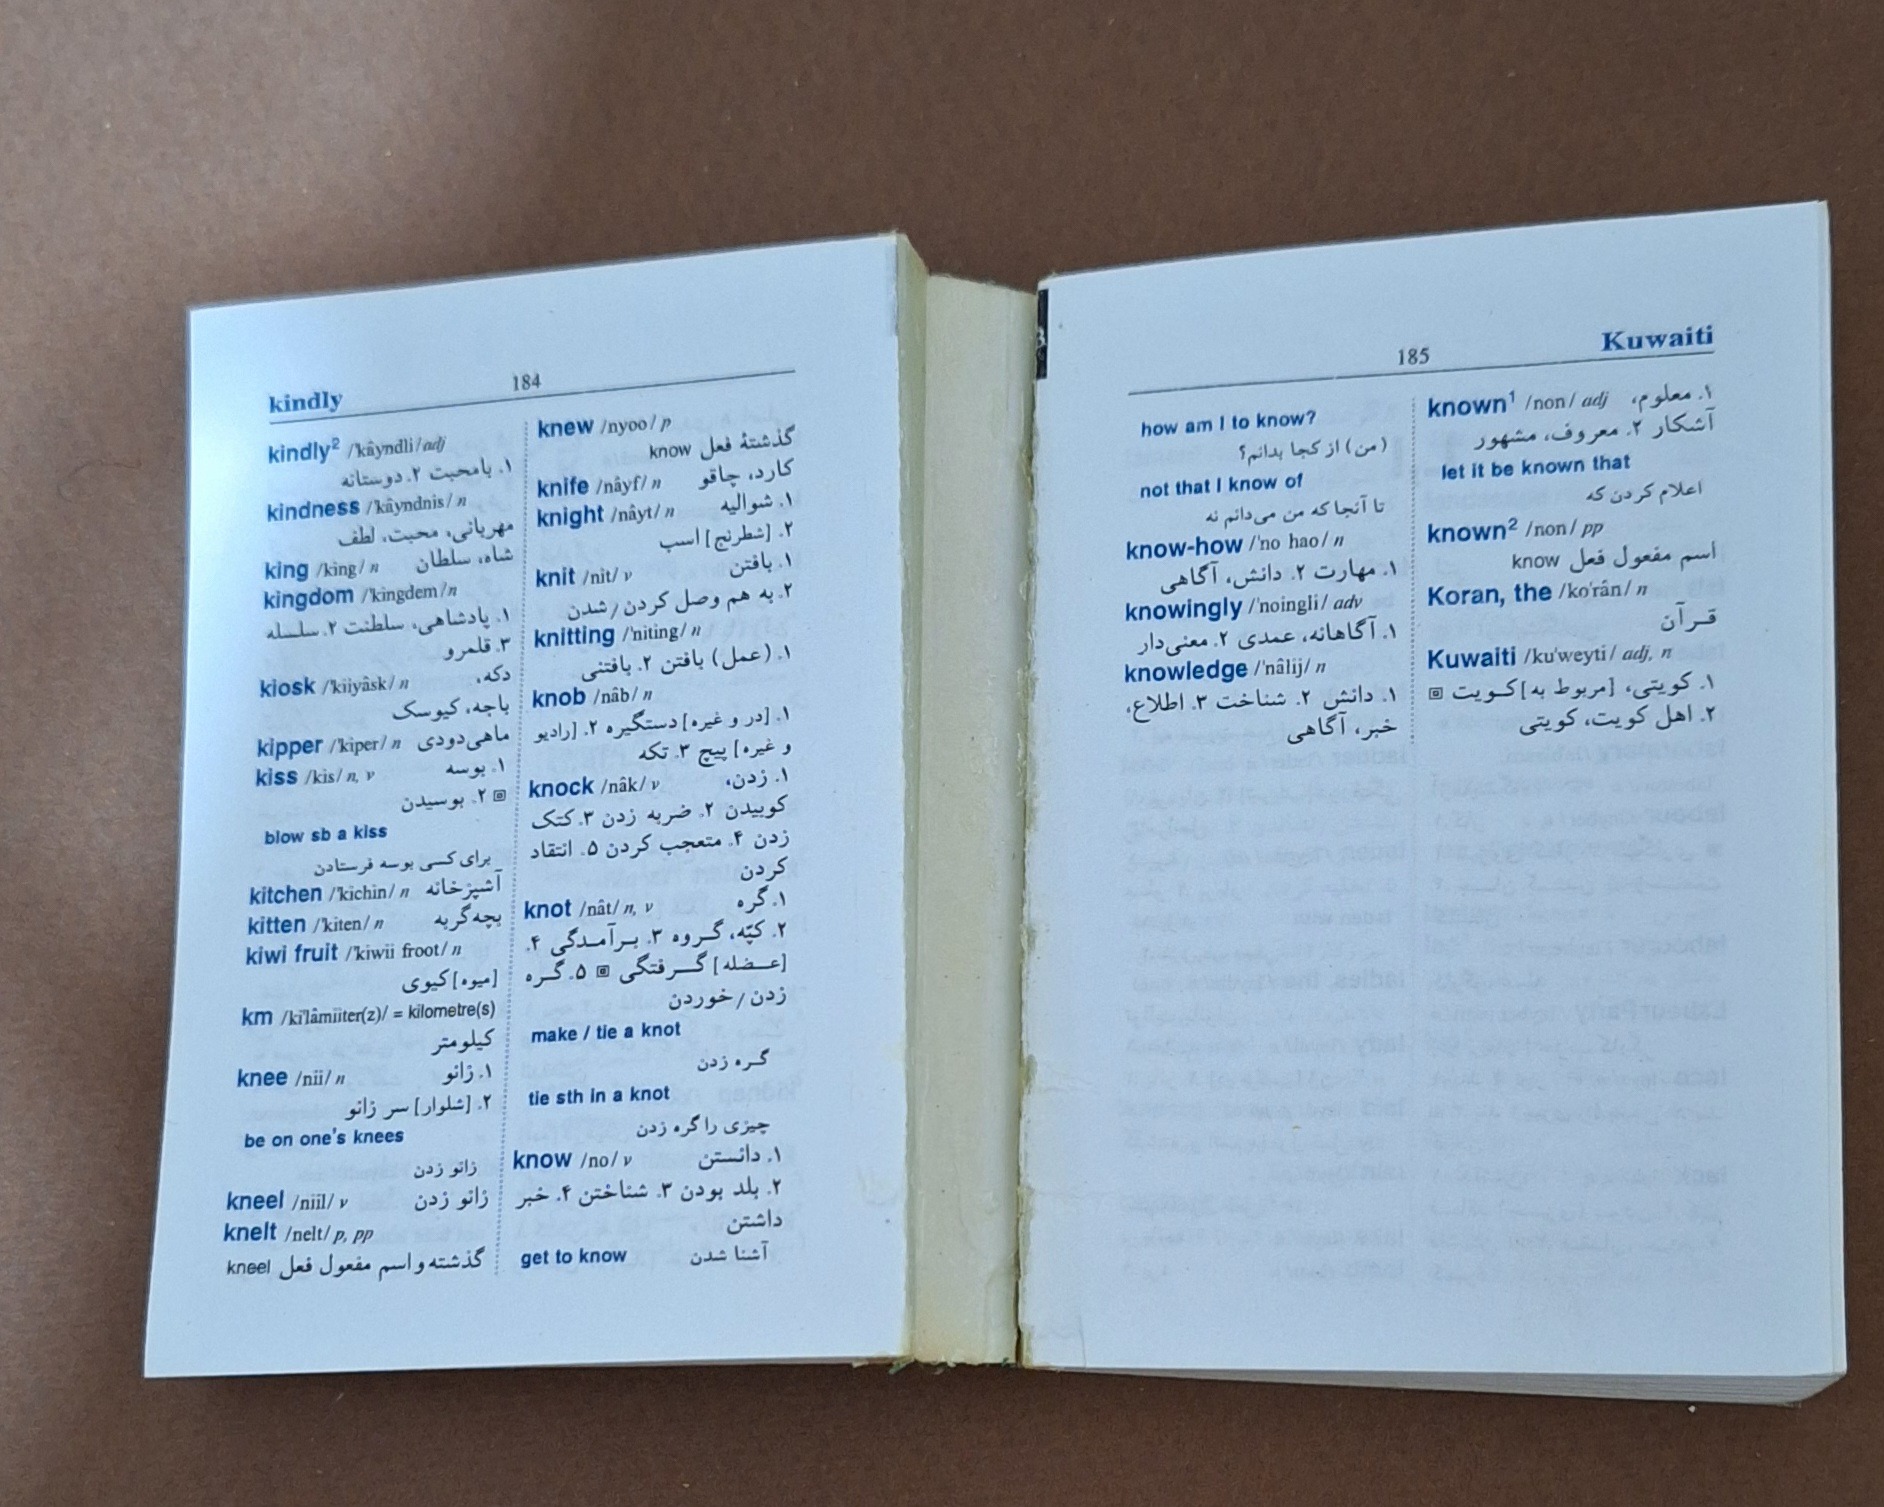 kindly
184
kindly² /'kâyndli/ adj
۱. بامحبت ۲. دوستانه
kindness /'kâyndnis/ n
مهربانی، محبت، لطف
king /king/ n شاه، سلطان
kingdom /'kingdem/ n
۱. پادشاهی، سلطنت ۲. سلسله
۳. قلمرو
kiosk /'kiiyâsk/ n دکه،
باجه، کیوسک
kipper /'kiper/ n ماهی‌دودی
kiss /kis/ n, v ۱. بوسه
▣ ۲. بوسیدن
blow sb a kiss
برای کسی بوسه فرستادن
kitchen /'kichin/ n آشپزخانه
kitten /'kiten/ n بچه‌گربه
kiwi fruit /'kiwii froot/ n
[میوه] کیوی
km /ki'lâmiiter(z)/ = kilometre(s)
کیلومتر
knee /nii/ n ۱. زانو
۲. [شلوار] سر زانو
be on one's knees
زانو زدن
kneel /niil/ v زانو زدن
knelt /nelt/ p, pp
گذشته و اسم مفعول فعل kneel
knew /nyoo/ p
گذشتهٔ فعل know
knife /nâyf/ n کارد، چاقو
knight /nâyt/ n ۱. شوالیه
۲. [شطرنج] اسب
knit /nit/ v ۱. بافتن
۲. به هم وصل کردن/شدن
knitting /'niting/ n
۱. (عمل) بافتن ۲. بافتنی
knob /nâb/ n
۱. [در و غیره] دستگیره ۲. [رادیو
و غیره] پیچ ۳. تکه
knock /nâk/ v ۱. زدن،
کوبیدن ۲. ضربه زدن ۳. کتک
زدن ۴. متعجب کردن ۵. انتقاد
کردن
knot /nât/ n, v ۱. گره
۲. کپّه، گروه ۳. برآمدگی ۴.
[عضله] گرفتگی ▣ ۵. گره
زدن/خوردن
make / tie a knot
گره زدن
tie sth in a knot
چیزی را گره زدن
know /no/ v ۱. دانستن
۲. بلد بودن ۳. شناختن ۴. خبر
داشتن
get to know آشنا شدن
185
Kuwaiti
how am I to know?
(من) از کجا بدانم؟
not that I know of
تا آنجا که من می‌دانم نه
know-how /'no hao/ n
۱. مهارت ۲. دانش، آگاهی
knowingly /'noingli/ adv
۱. آگاهانه، عمدی ۲. معنی‌دار
knowledge /'nâlij/ n
۱. دانش ۲. شناخت ۳. اطلاع،
خبر، آگاهی
known¹ /non/ adj ۱. معلوم،
آشکار ۲. معروف، مشهور
let it be known that
اعلام کردن که
known² /non/ pp
اسم مفعول فعل know
Koran, the /ko'rân/ n
قرآن
Kuwaiti /ku'weyti/ adj, n
۱. کویتی، [مربوط به] کویت ▣
۲. اهل کویت، کویتی